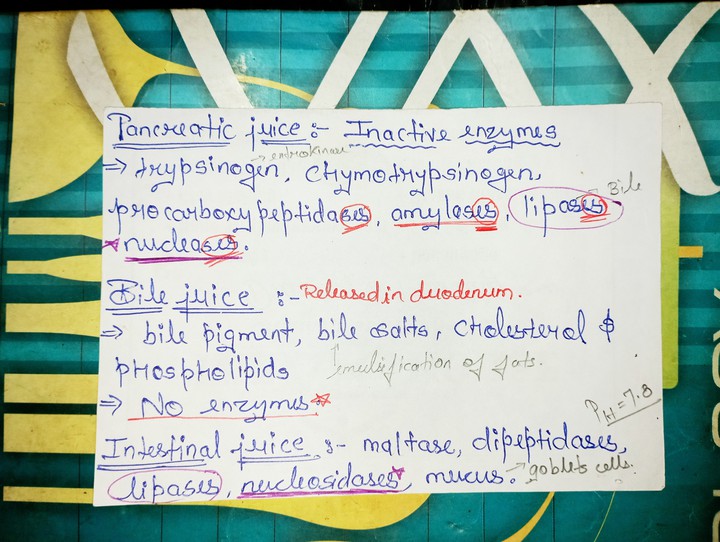 Pancreatic juice :- Inactive enzymes
→ entrokinase
⇒ trypsinogen, chymotrypsinogen,
→ Bile
procarboxypeptidases, amylases, lipases
*nucleases.
Bile juice :- Released in duodenum.
⇒ bile pigment, bile salts, cholesterol &
phospholipids ↑emulsification of fats.
⇒ No enzymes.*
PH = 7.8
Intestinal juice :- maltase, dipeptidases,
lipases, nucleosidases*, mucus. → goblets cells.